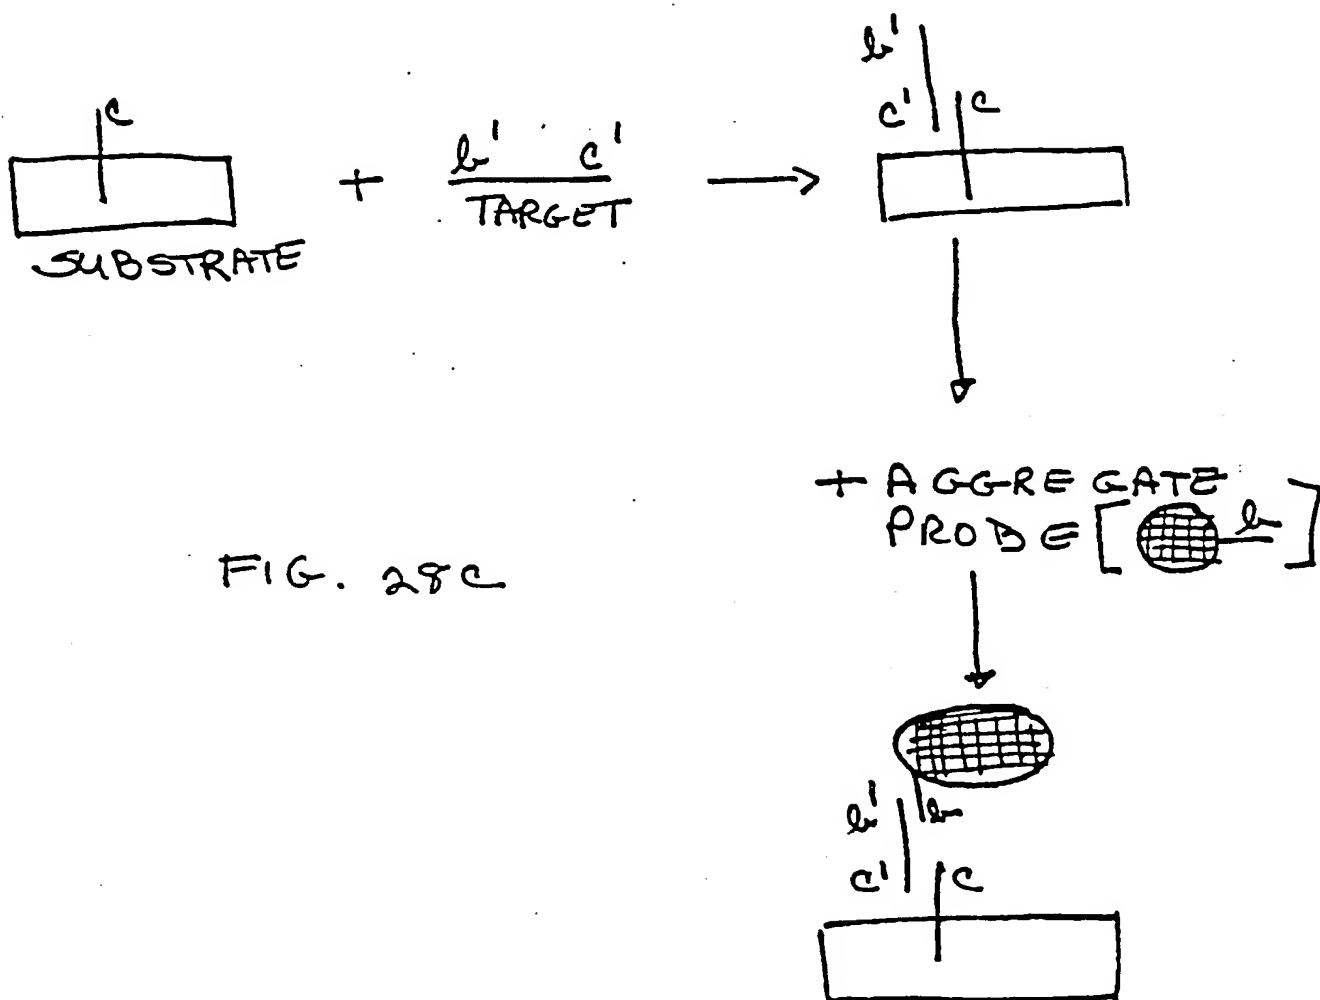 c
SUBSTRATE
+
b' c'
TARGET
b'
c' c
+ AGGREGATE
PROBE [ b ]
FIG. 28C
b' b
c' c